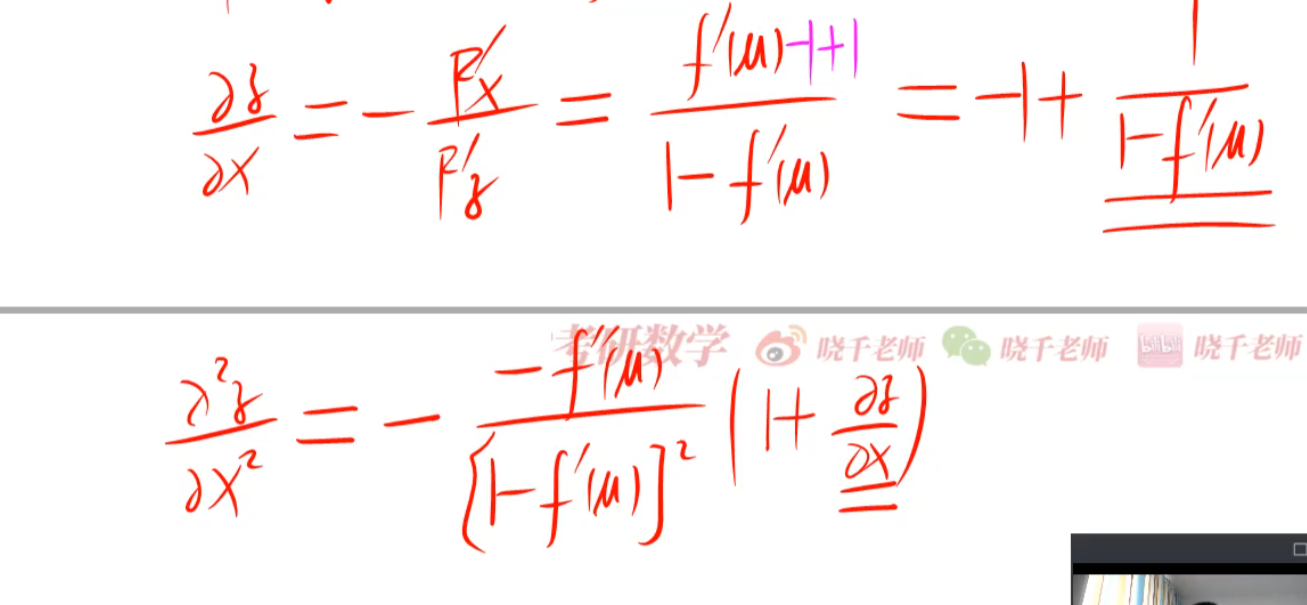 ∂z/∂x = - F'x/F'z = (f'(u)-1+1)/(1-f'(u)) = -1+ 1/(1-f'(u))
考研数学 晓千老师 晓千老师 bilibili 晓千老师
∂²z/∂x² = - (-f''(u))/[1-f'(u)]² (1+ ∂z/∂x)